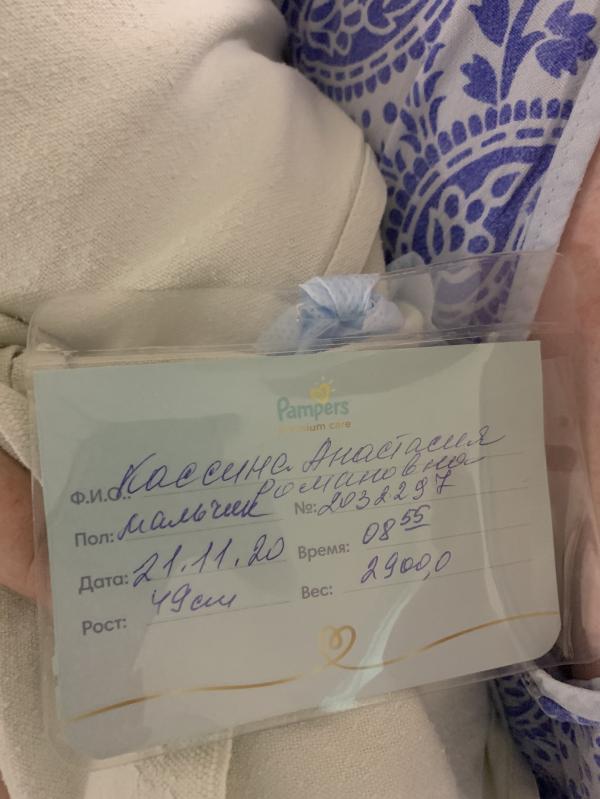 Pampers
premium care
Ф.И.О.: Кассина Анастасия
Романовна
Пол: мальчик №: 2032297
Дата: 21.11.20 Время: 08 55
Рост: 49см Вес: 2900,0